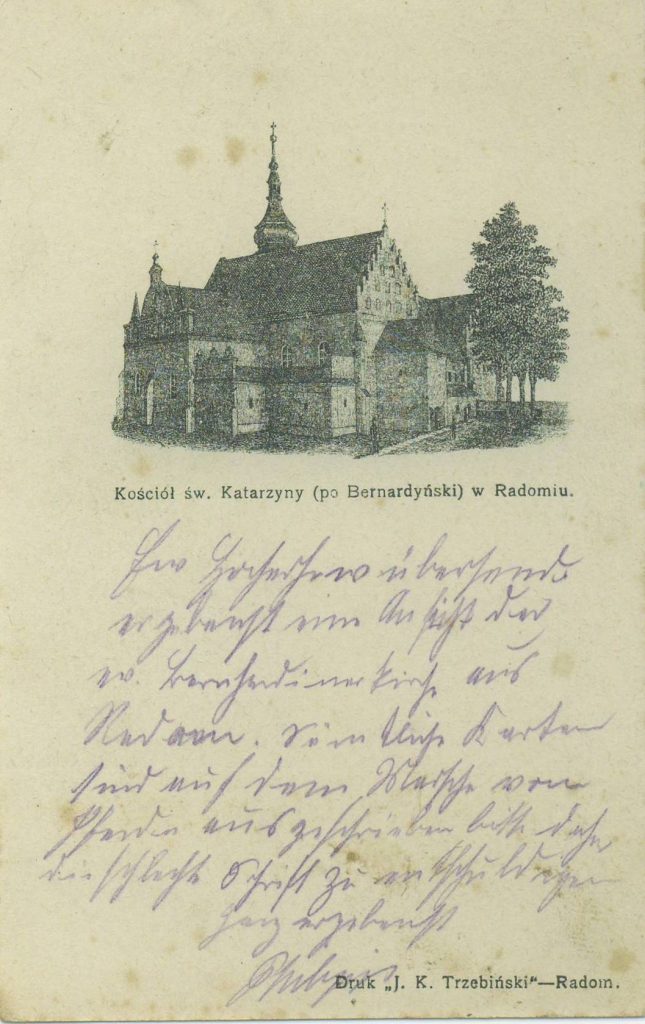 Kościół św. Katarzyny (po Bernardyński) w Radomiu.
Ew Hochehrw übersende
ergebenst eine Ansicht der
ev. Bernhardinerkirche aus
Radom. Sämtliche Karten
sind auf dem Marsche vom
Pferde aus geschrieben bitte daher
die schlechte Schrift zu entschuldigen
Ganz ergebenst
Druk „J. K. Trzebiński“—Radom.